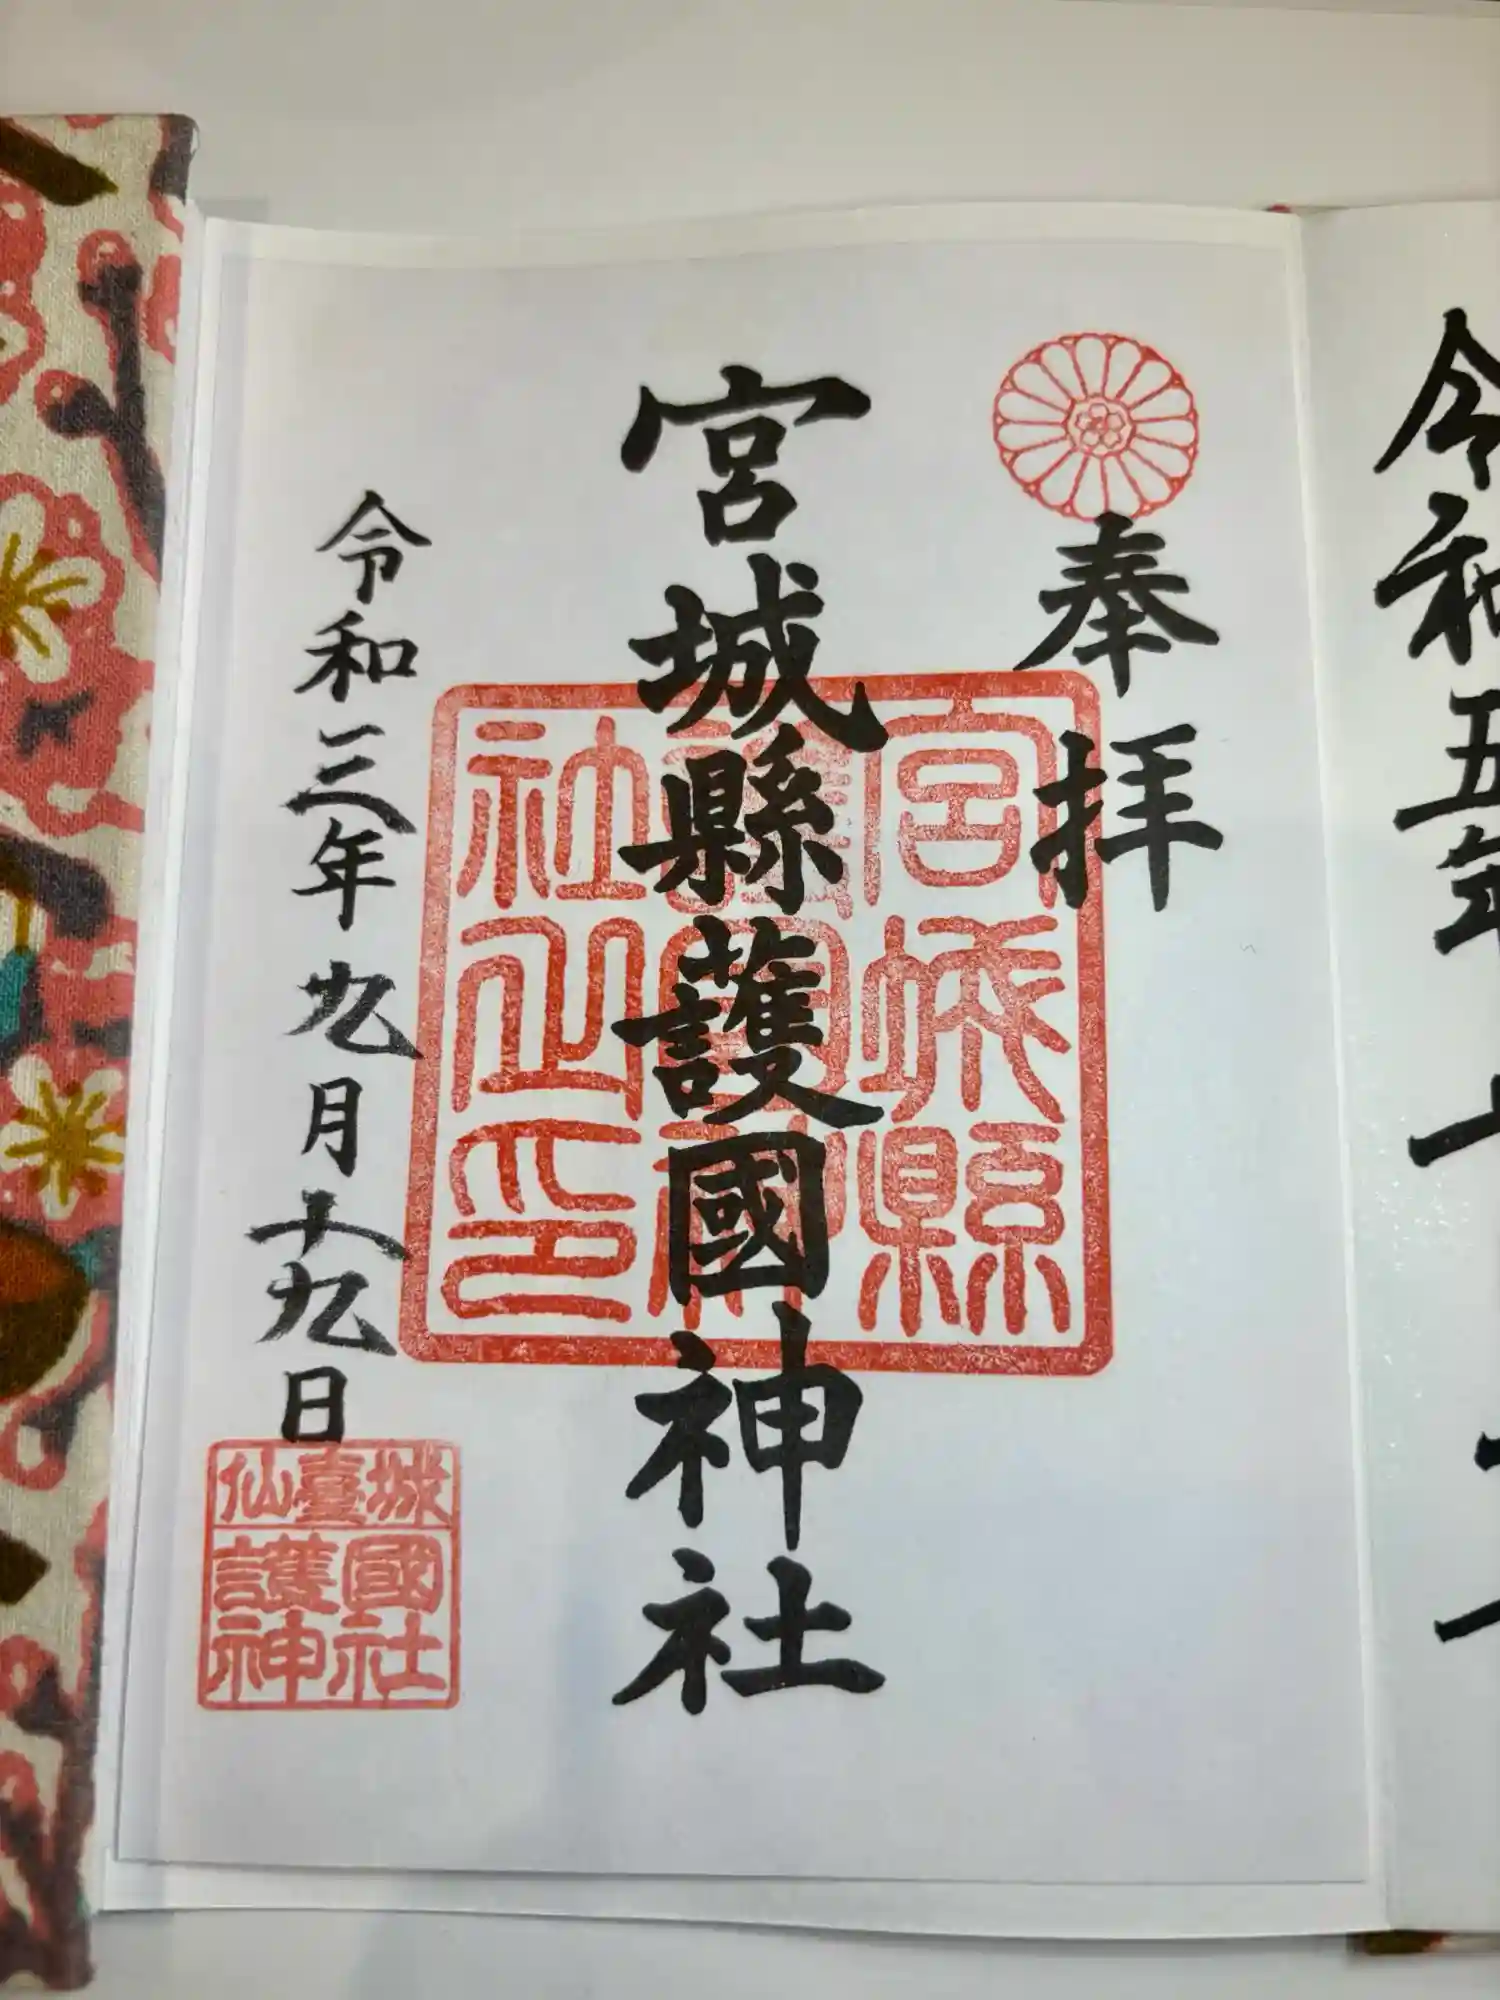 令和五年
奉拝
宮城縣護國神社
宮城縣
護國神
社之印
令和三年九月十九日
仙臺城
護國
神社